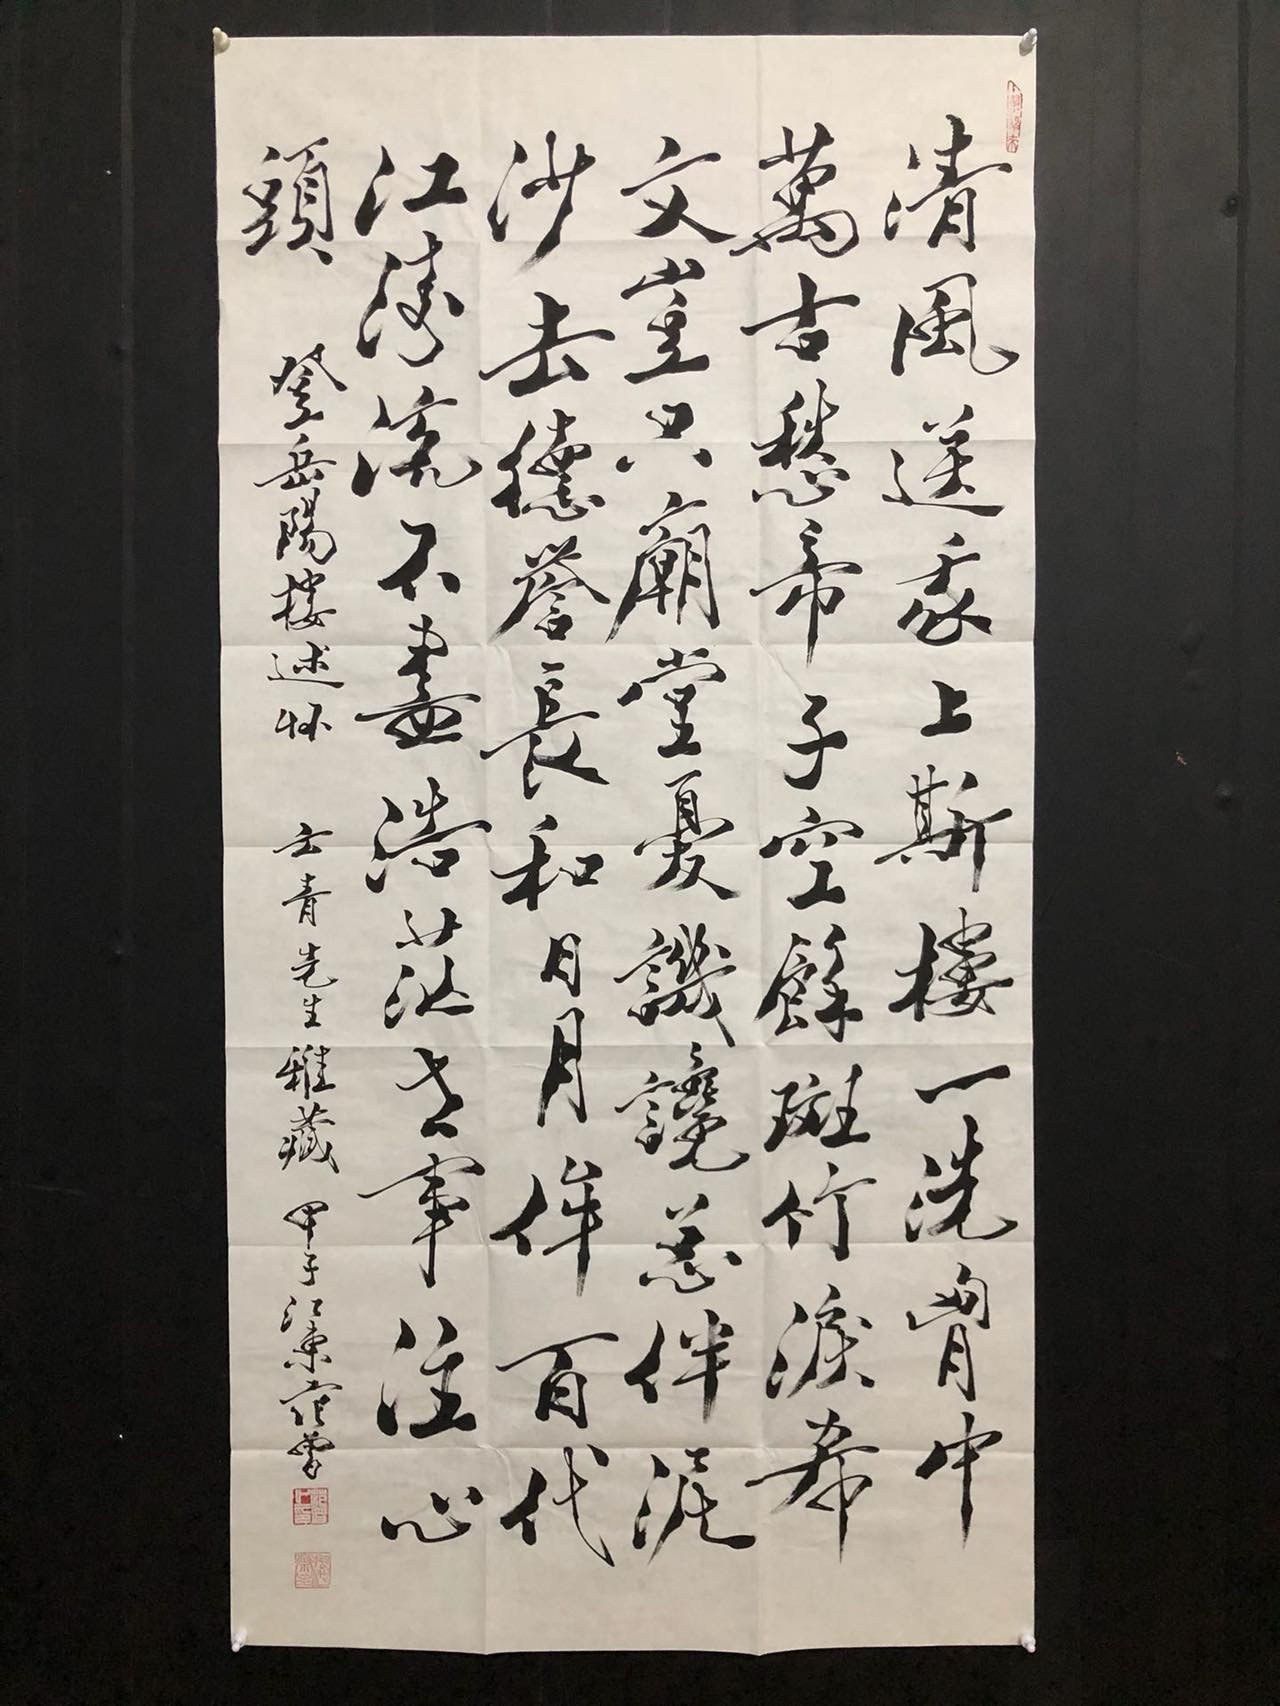 清風送我上斯樓一洗胷中
萬古愁帝子空餘斑竹淚希
文豈只廟堂憂譏讒盡伴泥
沙去德譽長和日月侔百代
江濤流不盡浩茫世事注心
頭
登岳陽樓述怀
士青先生雅藏
甲子江東范曾